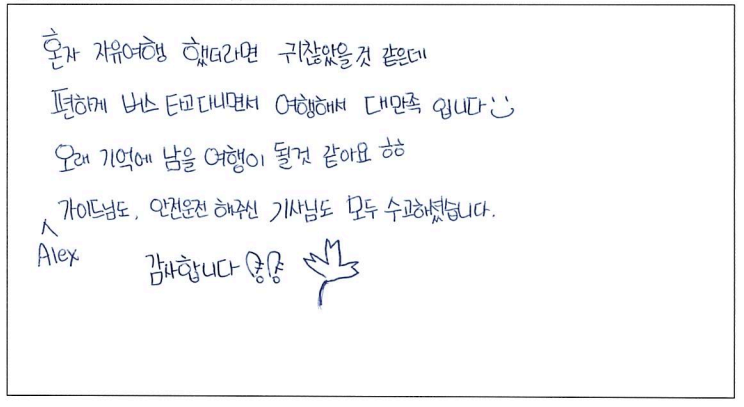 혼자 자유여행 했더라면 귀찮았을것 같은데
편하게 버스 타고다니면서 여행해서 대만족 입니다
오래 기억에 남을 여행이 될것 같아요 ㅎㅎ
가이드님도, 안전운전 해주신 기사님도 모두 수고하셨습니다.
Alex
감사합니다